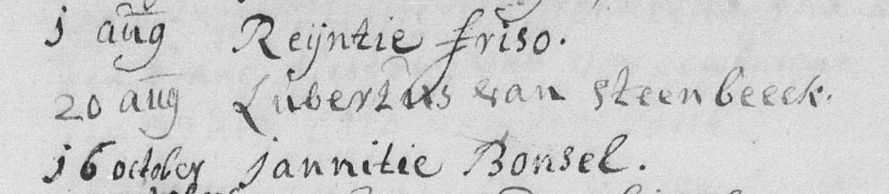 1 aug Reijntie friso.
20 aug Lubertus van steenbeeck.
16 october Jannitie Bonsel.